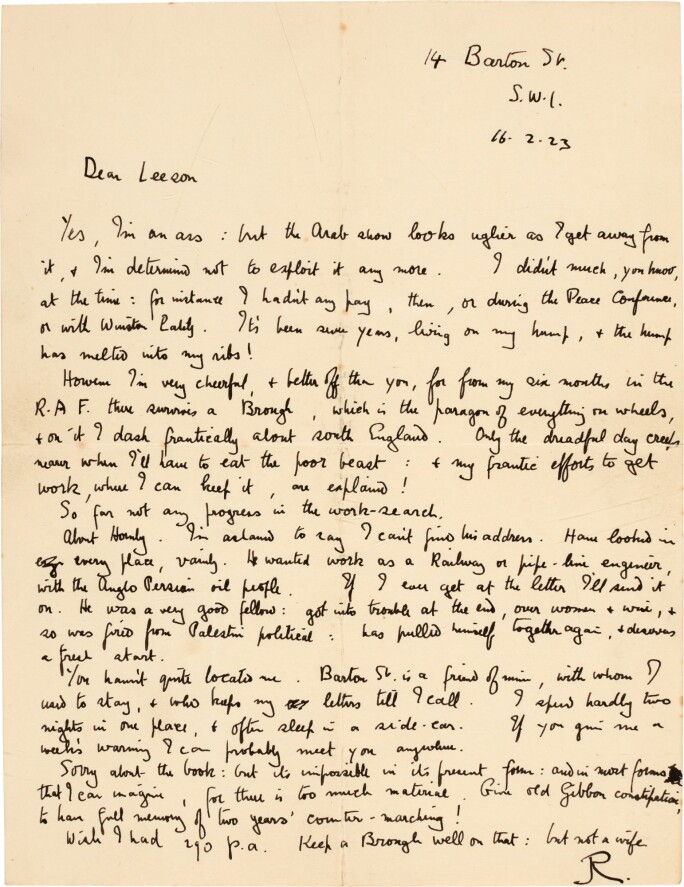 14 Barton St.
S.W.1.
16.2.23
Dear Leeson
Yes, I'm an ass : but the Arab show looks uglier as I get away from
it, & I'm determined not to exploit it any more. I didn't much, you know,
at the time : for instance I hadn't any pay, then, or during the Peace Conference,
or with Winston lately. It's been seven years, living on my hump, & the hump
has melted into my ribs!
However I'm very cheerful, & better off than you, for from my six months in the
R.A.F. there survives a Brough, which is the paragon of everything on wheels,
& on it I dash frantically about south England. Only the dreadful day creeps
nearer when I'll have to eat the poor beast : & my frantic efforts to get
work, where I can keep it, are explained!
So far not any progress in the work-search.
About Hornby. I'm ashamed to say I can't find his address. Have looked in
every place, vainly. He wanted work as a Railway or pipe-line engineer,
with the Anglo Persian oil people. If I ever get at the letter I'll send it
on. He was a very good fellow : got into trouble at the end, over women & wine, &
so was fired from Palestine political : has pulled himself together again, & deserves
a fresh start.
You haven't quite located me. Barton St. is a friend of mine, with whom I
used to stay, & who keeps my letters till I call. I spend hardly two
nights in one place, & often sleep in a side-car. If you give me a
week's warning I can probably meet you anywhere.
Sorry about the book : but its impossible in its present form : and in most forms
that I can imagine, for there is too much material. Give old Gibbon constipation,
to have full memory of two years' counter-marching!
Wish I had 290 p.a. Keep a Brough well on that : but not a wife.
R.